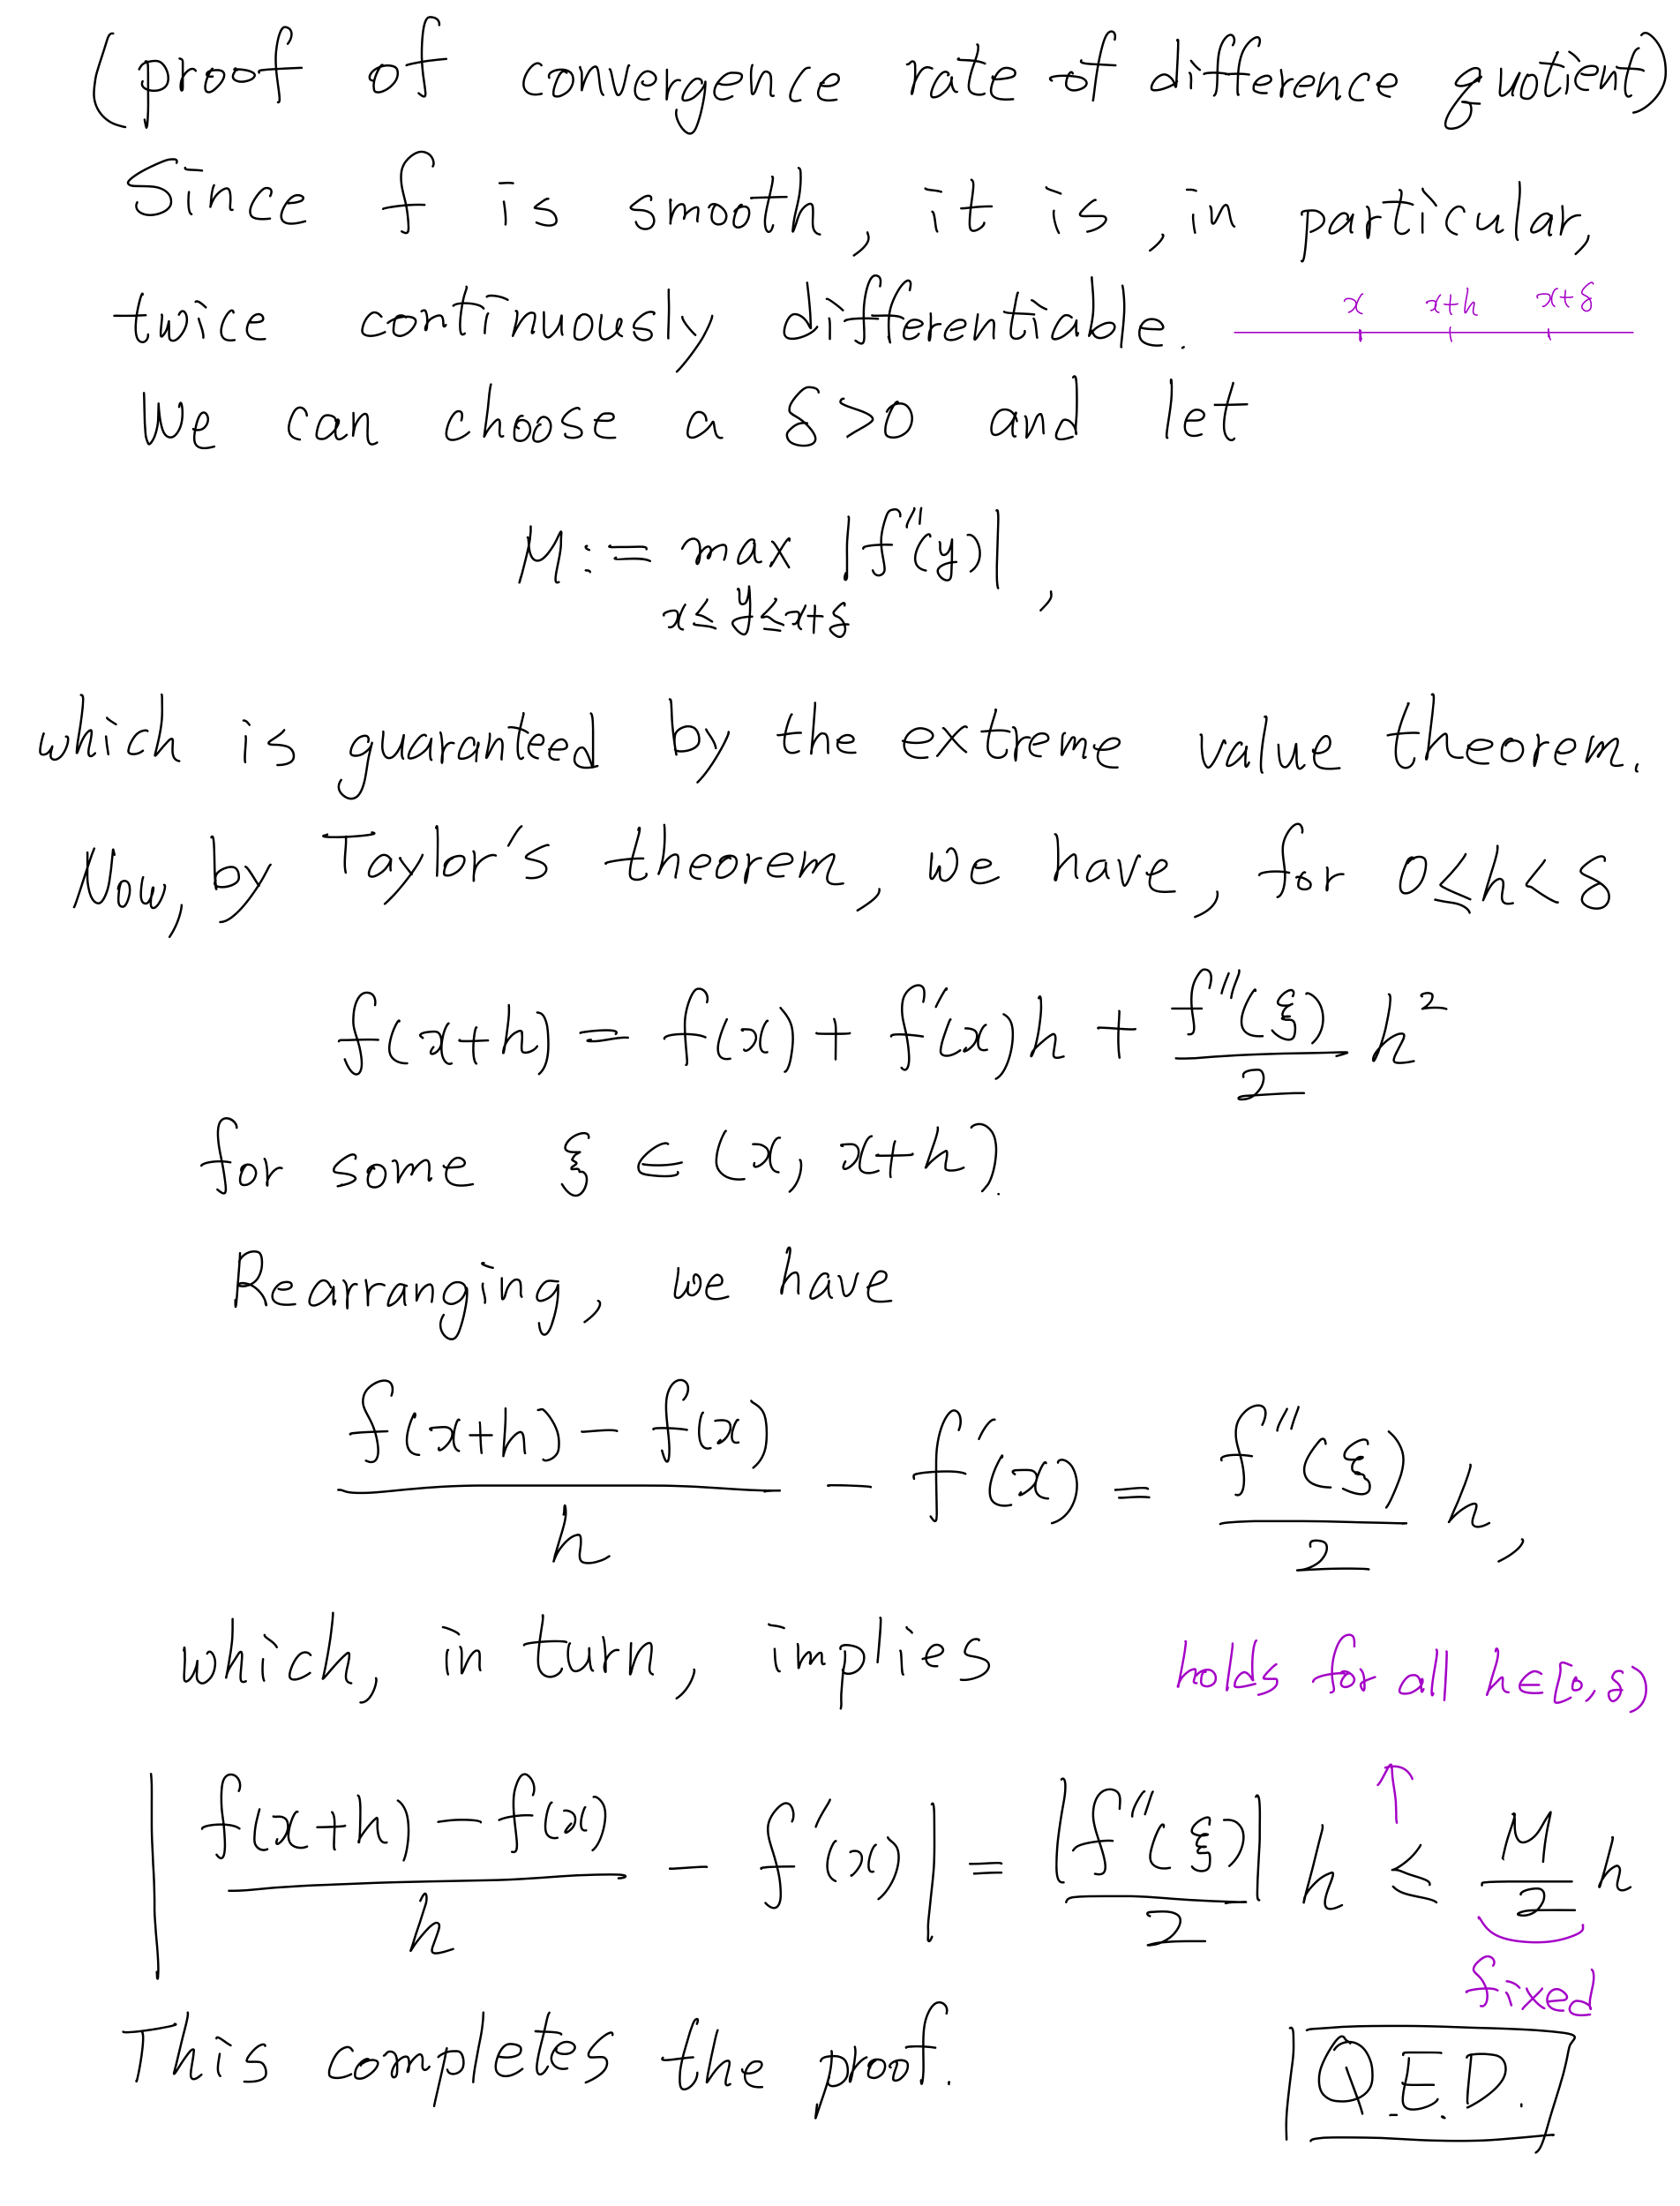 (proof of convergence rate of difference quotient)
Since f is smooth, it is, in particular,
twice continuously differentiable.
x x+h x+δ
We can choose a δ>0 and let
M := max |f''(y)|,
x≤y≤x+δ
which is guaranteed by the extreme value theorem.
Now, by Taylor's theorem, we have, for 0≤h<δ
f(x+h) = f(x) + f'(x)h + f''(ξ)/2 h²
for some ξ ∈ (x, x+h).
Rearranging, we have
(f(x+h) − f(x))/h − f'(x) = f''(ξ)/2 h,
which, in turn, implies
holds for all h∈[0,δ)
↑
|(f(x+h) − f(x))/h − f'(x)| = |f''(ξ)|/2 h ≤ M/2 h
fixed
This completes the proof.
Q.E.D.